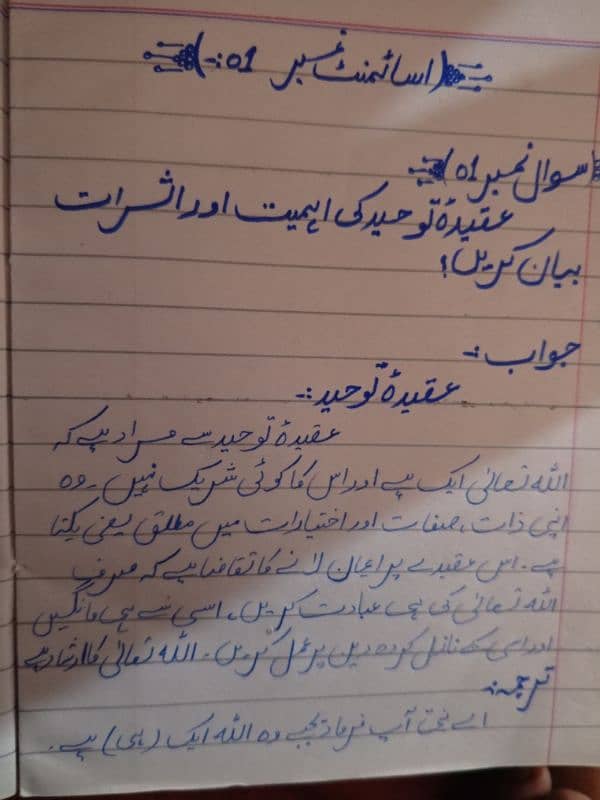 (اسائمنٹ نمبر 01:-)
(سوال نمبر 01)
عقیدۂ توحید کی اہمیت اور اثرات
بیان کریں؟
جواب:-
عقیدۂ توحید:-
عقیدۂ توحید سے مراد ہے کہ
اللہ تعالیٰ ایک ہے اور اس کا کوئی شریک نہیں۔ وہ
اپنی ذات، صفات اور اختیارات میں مطلق یعنی یکتا
ہے۔ اس عقیدے پر ایمان لانے کا تقاضا ہے کہ صرف
اللہ تعالیٰ کی ہی عبادت کریں، اسی سے ہی مانگیں
اور اسی کے نازل کردہ دین پر عمل کریں۔ اللہ تعالیٰ کا ارشاد ہے
ترجمہ:-
اے نبیؐ آپ فرما دیجیے وہ اللہ ایک (ہی) ہے۔